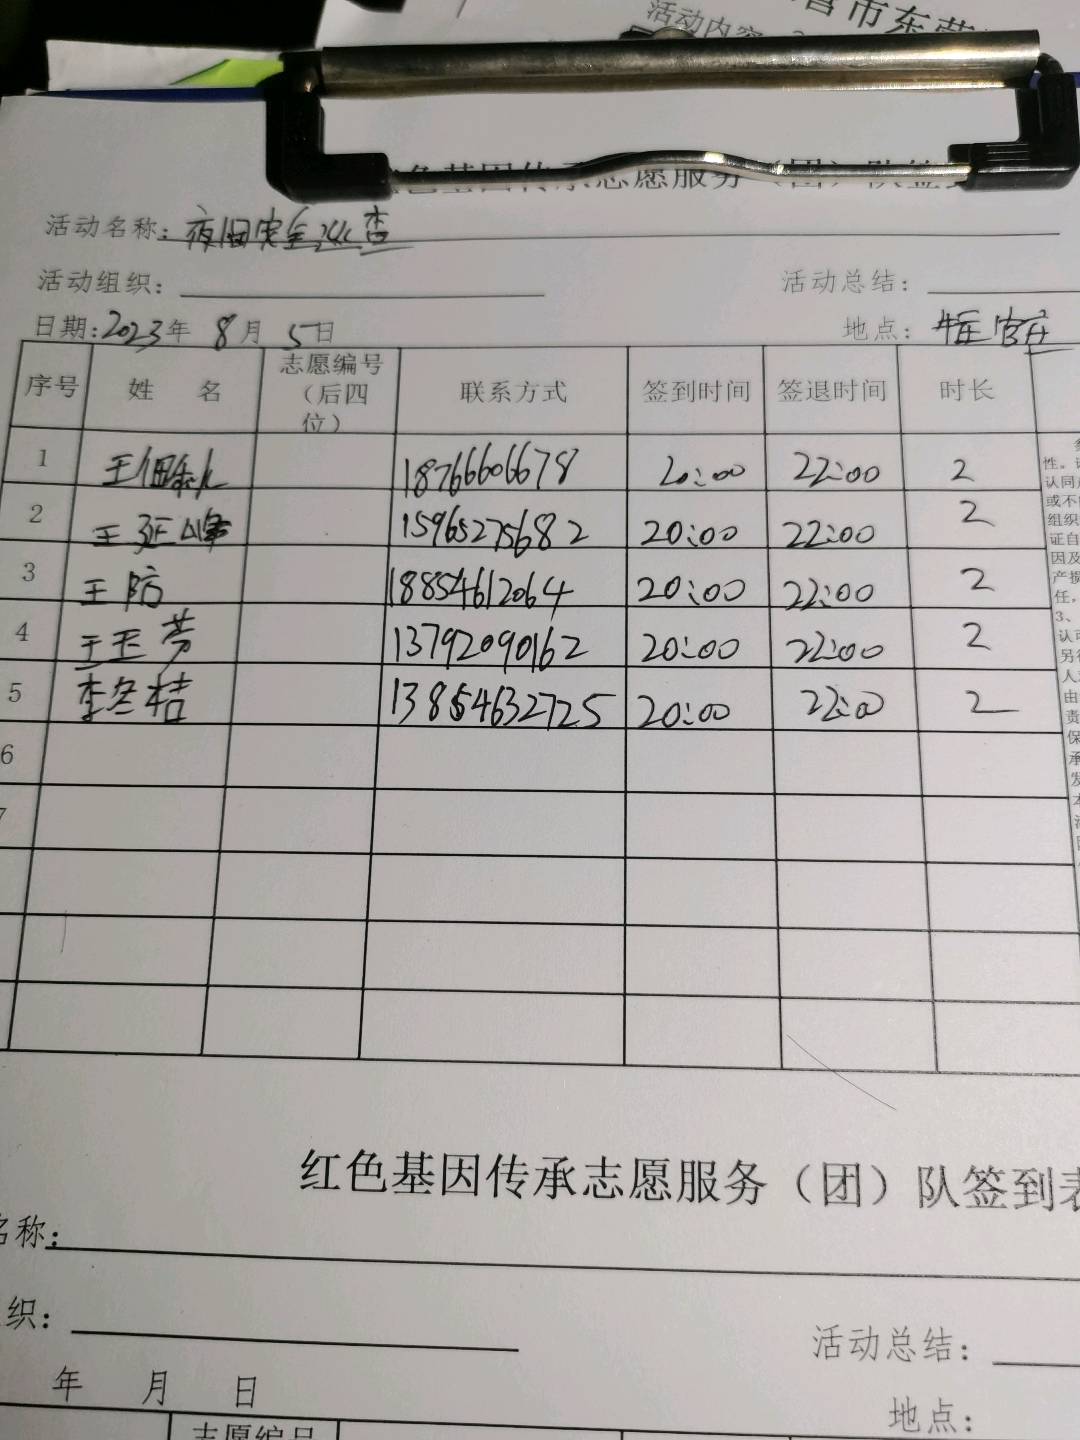 营市东营
活动内容
色基因传承志愿服务（团）队签到
活动名称：夜间安全巡查
活动组织：
活动总结：
日期：2023年 8月 5日
地点：
序号 姓 名 志愿编号（后四位） 联系方式 签到时间 签退时间 时长
1 18766606678 20:00 22:00 2
2 王延峰 15965275682 20:00 22:00 2
3 王防 18854612064 20:00 22:00 2
4 王玉芳 13792090162 20:00 22:00 2
5 李冬桔 13854632725 20:00 22:00 2
6
7
性。
认同
或不
组织
证自
因及
产损
任。
3、
认可
另行
人
由
责
保
承
发
本
红色基因传承志愿服务（团）队签到表
名称：
织：
活动总结：
年 月 日
地点：
志愿编号